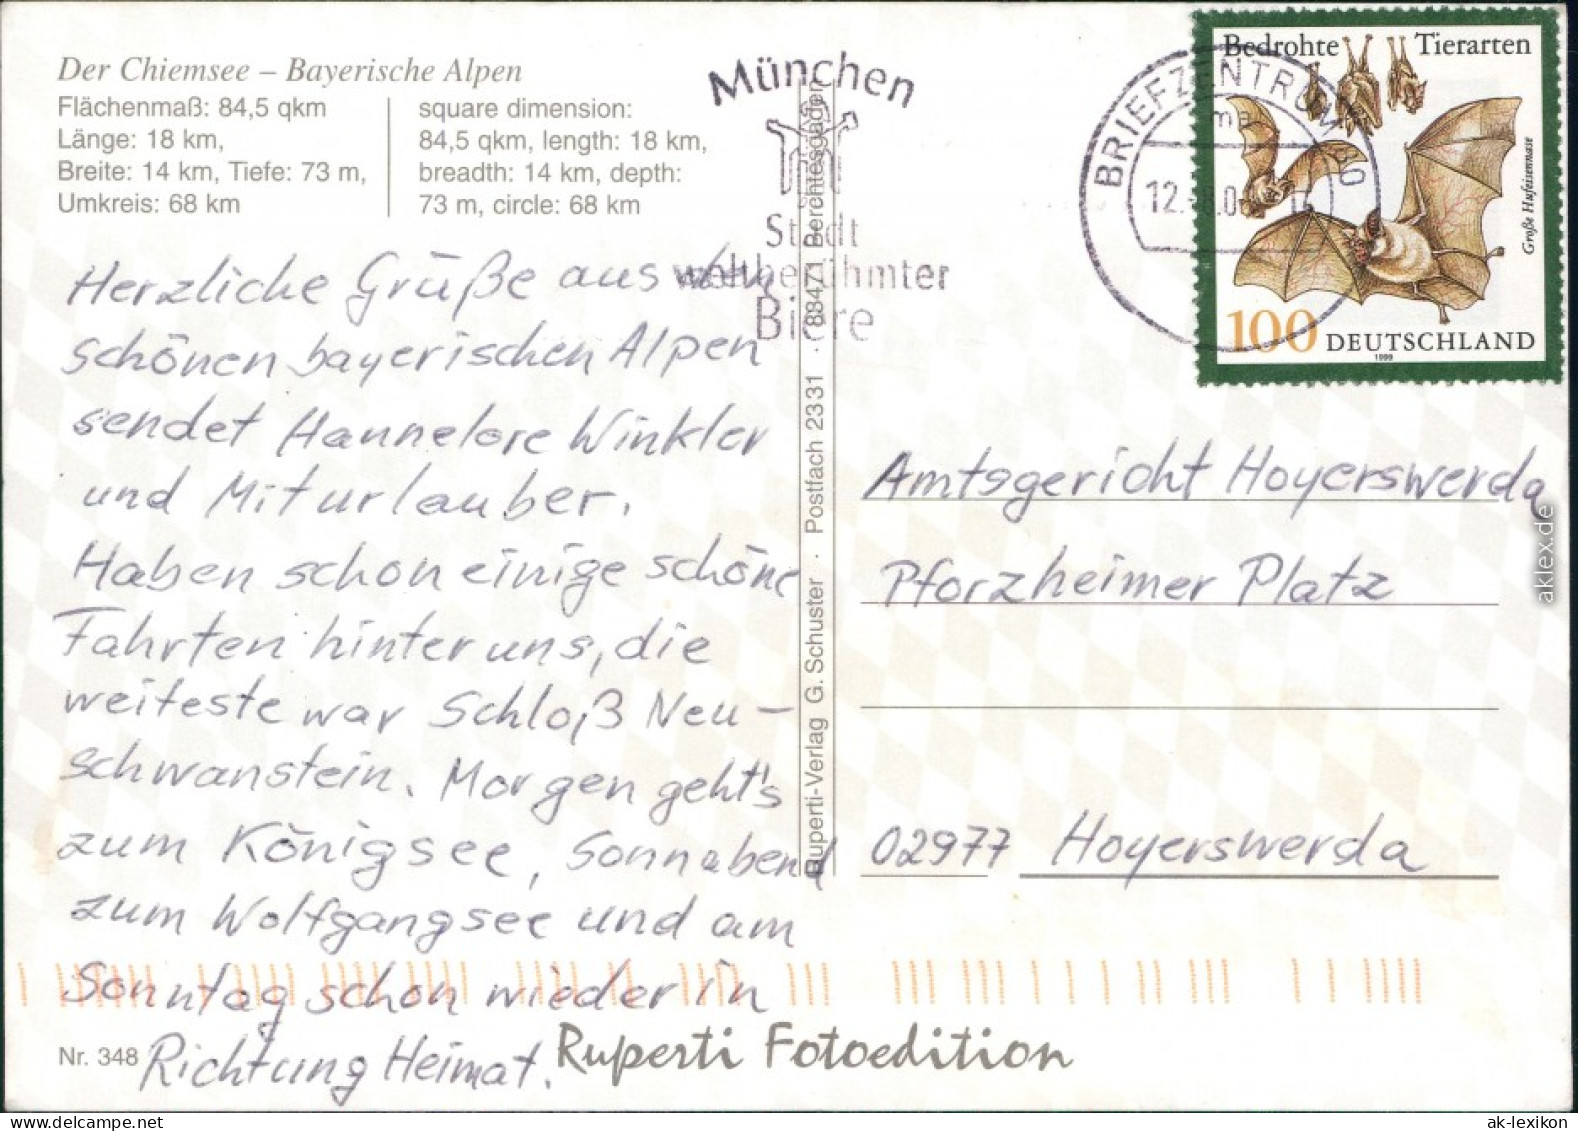 Der Chiemsee – Bayerische Alpen
Flächenmaß: 84,5 qkm
Länge: 18 km,
Breite: 14 km, Tiefe: 73 m,
Umkreis: 68 km
square dimension:
84,5 qkm, length: 18 km,
breadth: 14 km, depth:
73 m, circle: 68 km
München
Stadt
weltberühmter
Biere
BRIEFZENTRUM 80
ma
12.
Bedrohte Tierarten
Große Hufeisennase
100 DEUTSCHLAND
1999
Herzliche Grüße aus den
schönen bayerischen Alpen
sendet Hannelore Winkler
und Miturlauber.
Haben schon einige schöne
Fahrten hinter uns, die
weiteste war Schloß Neu-
schwanstein. Morgen geht's
zum Königsee, Sonnabend
zum Wolfgangsee und am
Sonntag schon wieder in
Richtung Heimat.
Ruperti-Verlag G. Schuster · Postfach 2331 · 88471 Berchtesgaden
Amtsgericht Hoyerswerda
Pforzheimer Platz
02977 Hoyerswerda
Nr. 348
Ruperti Fotoedition
aklex.de
ak-lexikon